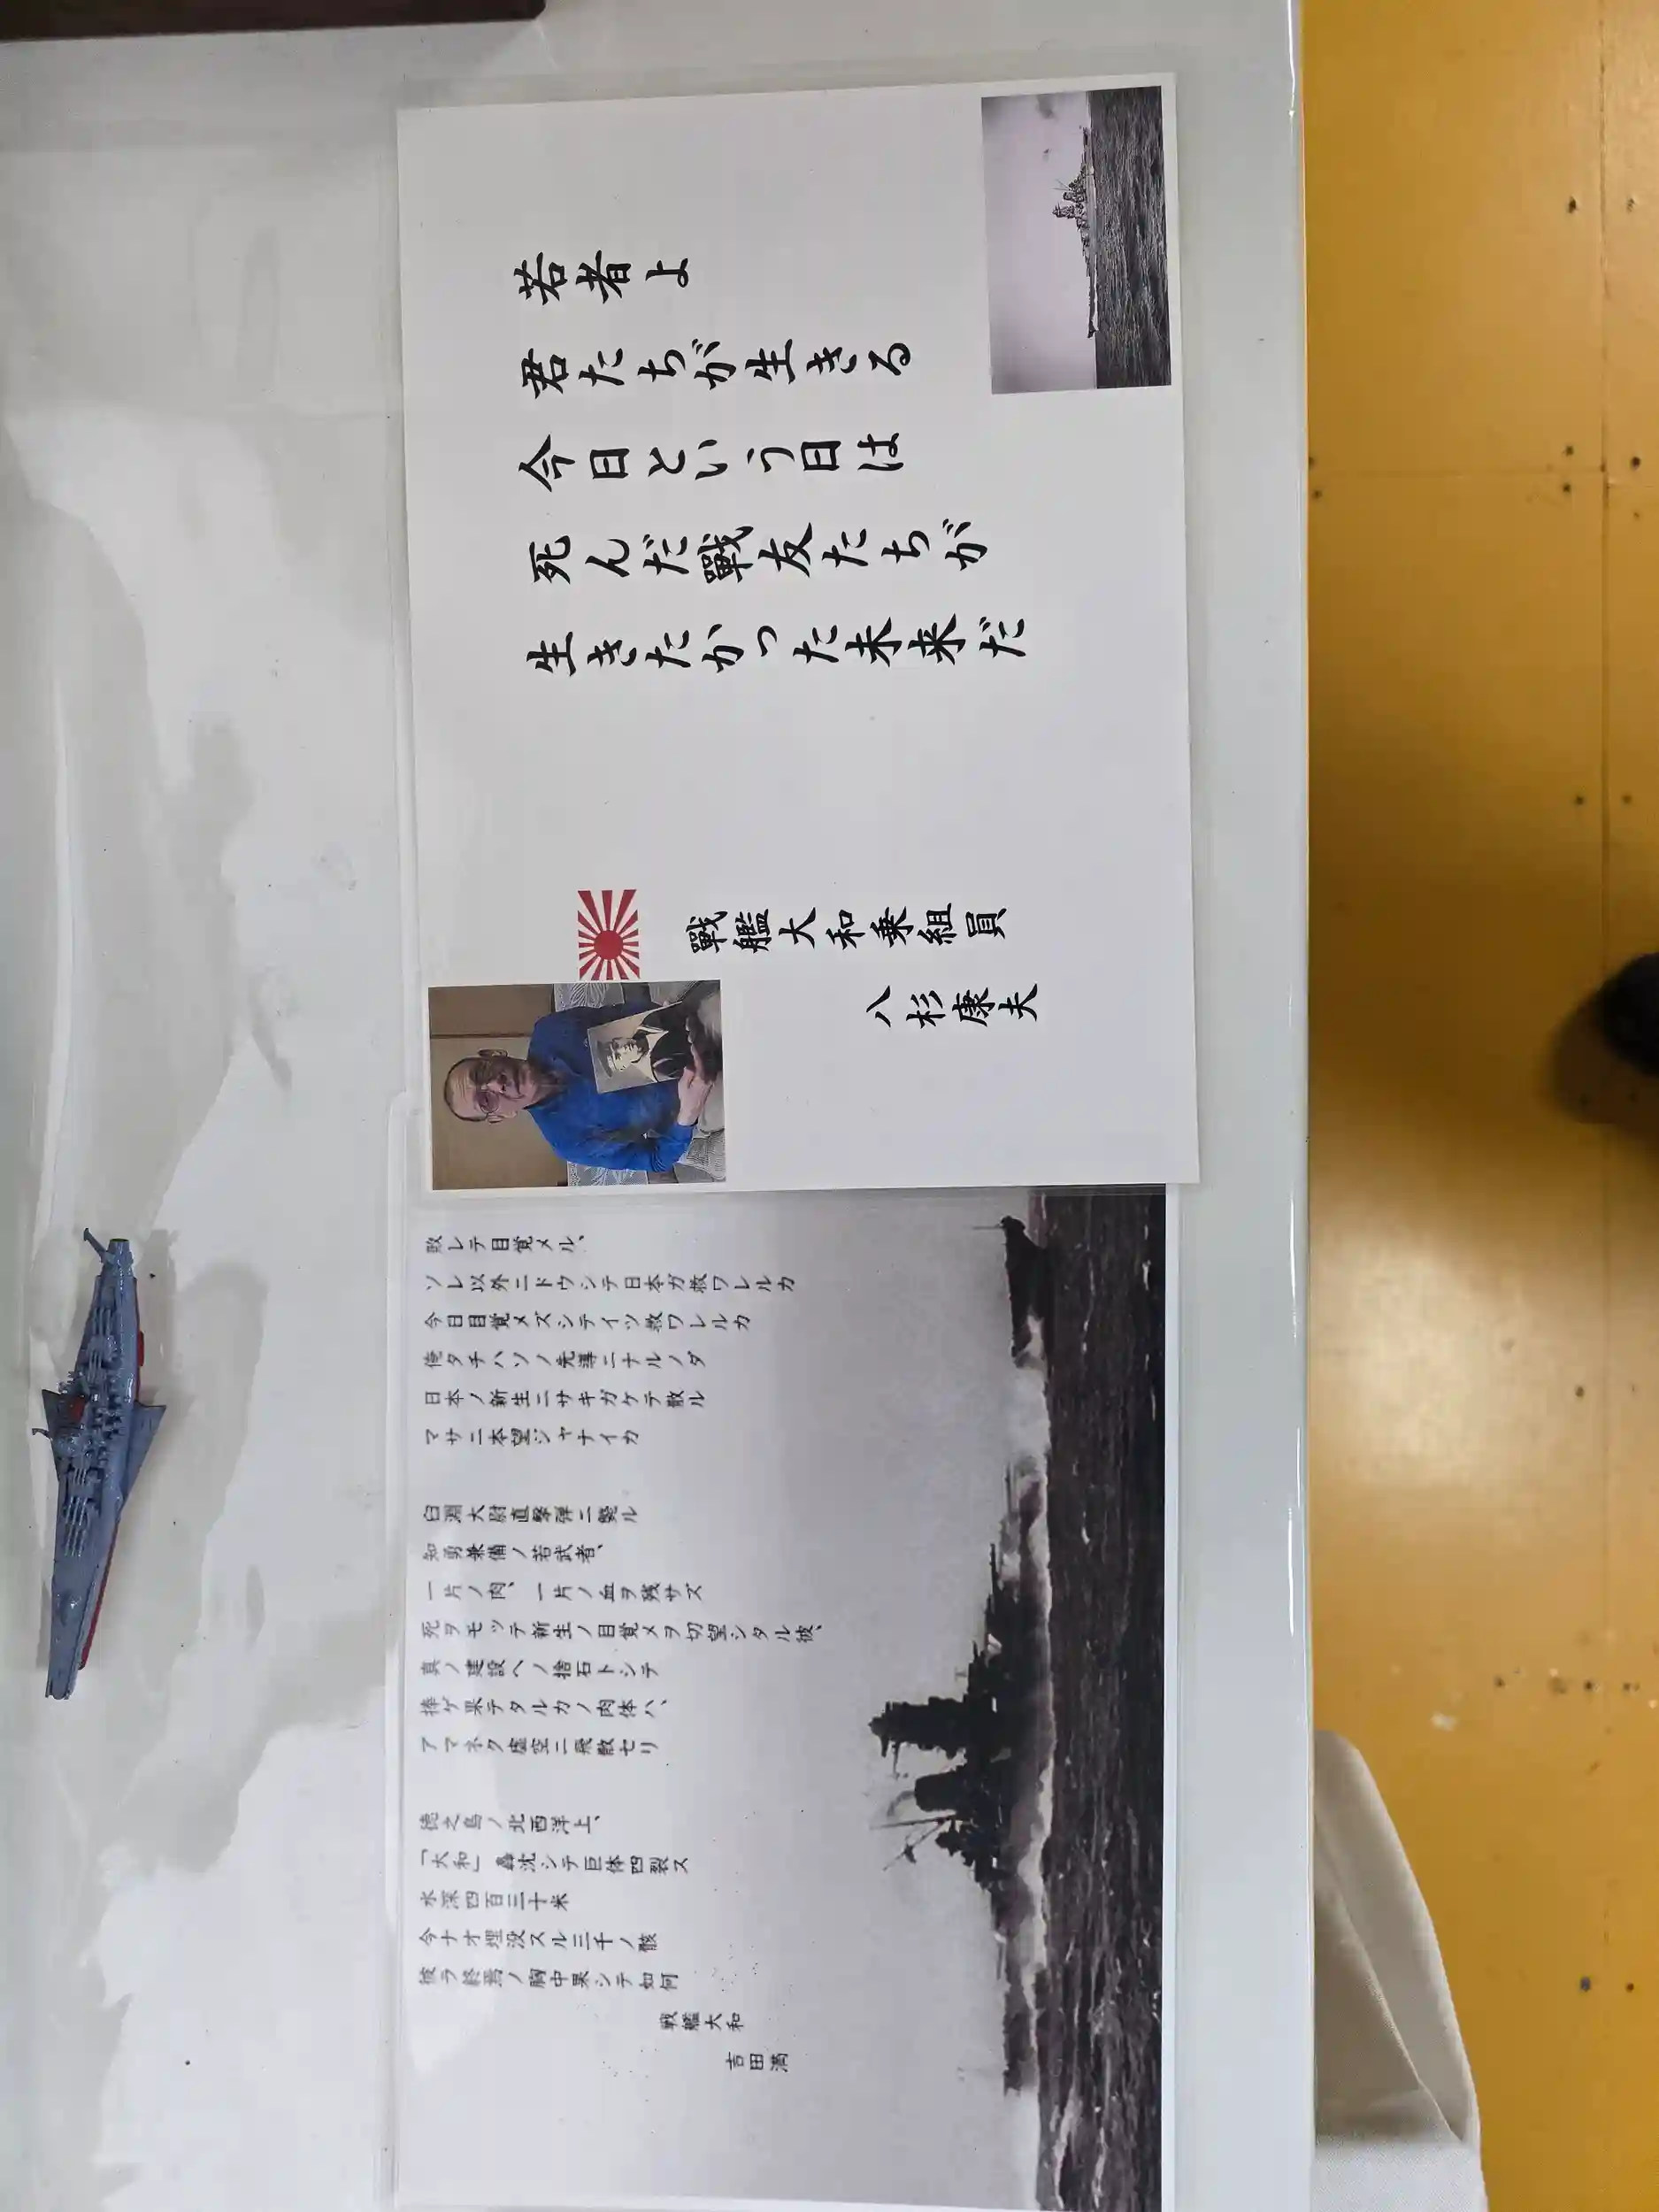 若者よ
君たちが生きる
今日という日は
死んだ戰友たちが
生きたかった未来だ
戰艦大和乗組員
八杉康夫
敗レテ目覚メル、
ソレ以外ニドウシテ日本ガ救ワレルカ
今日目覚メズシテイツ救ワレルカ
俺タチハソノ先導ニナルノダ
日本ノ新生ニサキガケテ散ル
マサニ本望ジャナイカ
臼淵大尉直撃弾ニ斃ル
知勇兼備ノ若武者、
一片ノ肉、一片ノ血ヲ残サズ
死ヲモッテ新生ノ目覚メヲ切望シタル彼、
真ノ建設ヘノ捨石トシテ
捧ゲ果テタルカノ肉体ハ、
アマネク虚空ニ飛散セリ
徳之島ノ北西洋上、
「大和」轟沈シテ巨体四裂ス
水深四百三十米
今ナオ埋没スル三千ノ骸
彼ラ終焉ノ胸中果シテ如何
戦艦大和
吉田満